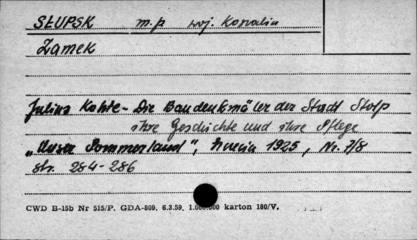 SŁUPSK m.p woj. Koszalin
Zamek
Julius Kohte - Die Baudenkmäler der Stadt Stolp
ihre Geschichte und ihre Pflege
„Unser Pommerland", 1925, Nr. 7/8
str. 284-286
CWD B-15b Nr 515/P. GDA-809. 6.3.59. 1.000.000 karton 180/V.